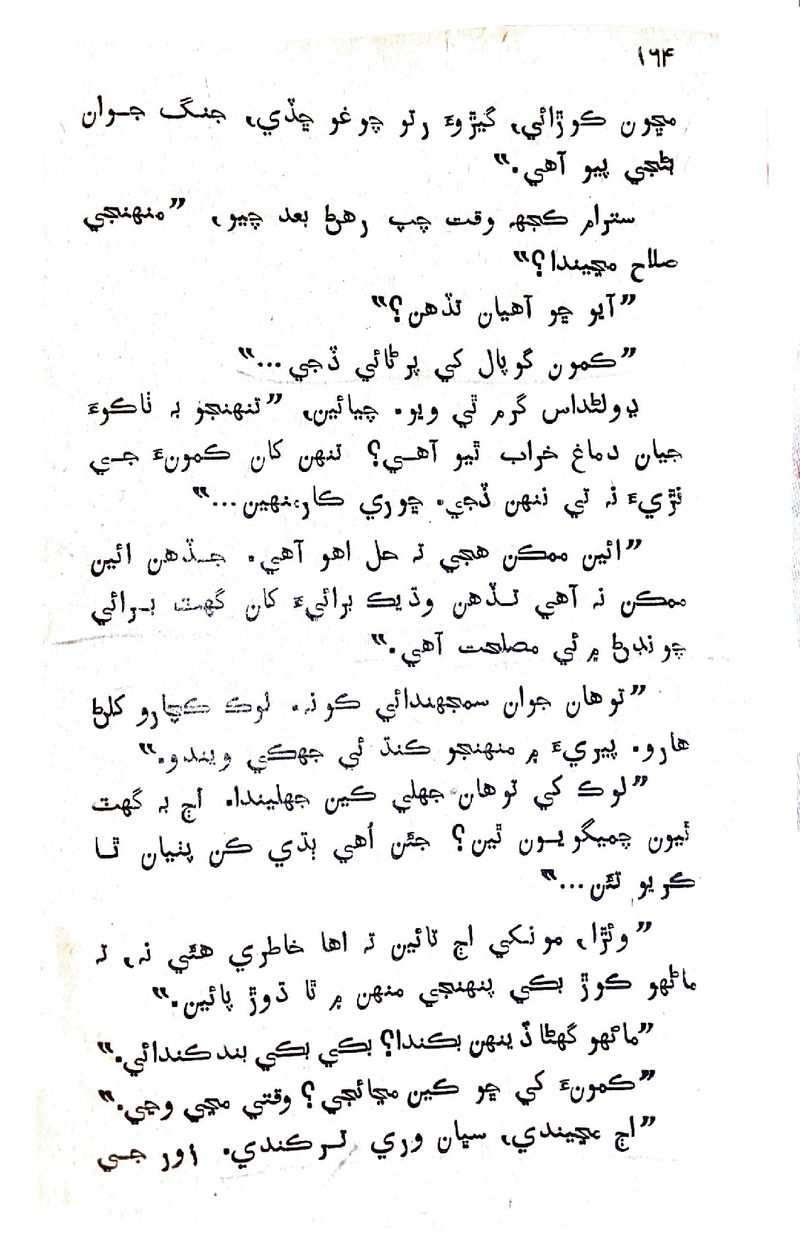 ۱۶۴
مڇون ڪوڙائي، گيڙوءَ رتو چوغو ڇڏي، جنگ جوان
بڻجي پيو آهي.“
سترام ڪجهہ وقت چپ رهڻ بعد چيو، ”منهنجي
صلاح مڃيندا؟“
”آيو ڇو آهيان تڏهن؟“
”ڪمون گوپال کي پرڻائي ڏجي...“
ڊولڻداس گرم ٿي ويو. چيائين، ”تنهنجو بہ ٺاڪوءَ
جيان دماغ خراب ٿيو آهي؟ تنهن کان ڪمونءَ جي
نڙيءَ نہ ٿي ننهن ڏجي. ڇوري ڪارينهين...“
”ائين ممڪن هجي تہ حل اهو آهي. جڏهن ائين
ممڪن نہ آهي تڏهن وڌيڪ برائيءَ کان گهٽ برائي
چونڊڻ ۾ ئي مصلحت آهي.“
”توهان جوان سمجهندائي ڪونہ. لوڪ ڪچارو کلڻ
هارو. پيريءَ ۾ منهنجو ڪنڌ ئي جهڪي ويندو.“
”لوڪ کي توهان جهلي ڪين جهليندا. اڄ بہ گهٽ
ٿيون چميگويون ٿين؟ جئن اُهي ٻڌي ڪن پٺيان ٿا
ڪريو تئن...“
”وئڙا، مونکي اڄ تائين تہ اها خاطري هئي نہ، تہ
ماڻهو ڪوڙ بڪي پنهنجي منهن ۾ ٿا ڌوڙ پائين.“
”ماڻهو گهڻا ڏينهن بڪندا؟ بڪي بڪي بند ڪندائي.“
”ڪمونءَ کي ڇو ڪين مڃائجي؟ وقتي مڃي وڃي.“
”اڄ مڃيندي، سڀان وري ترڪندي. زور جي